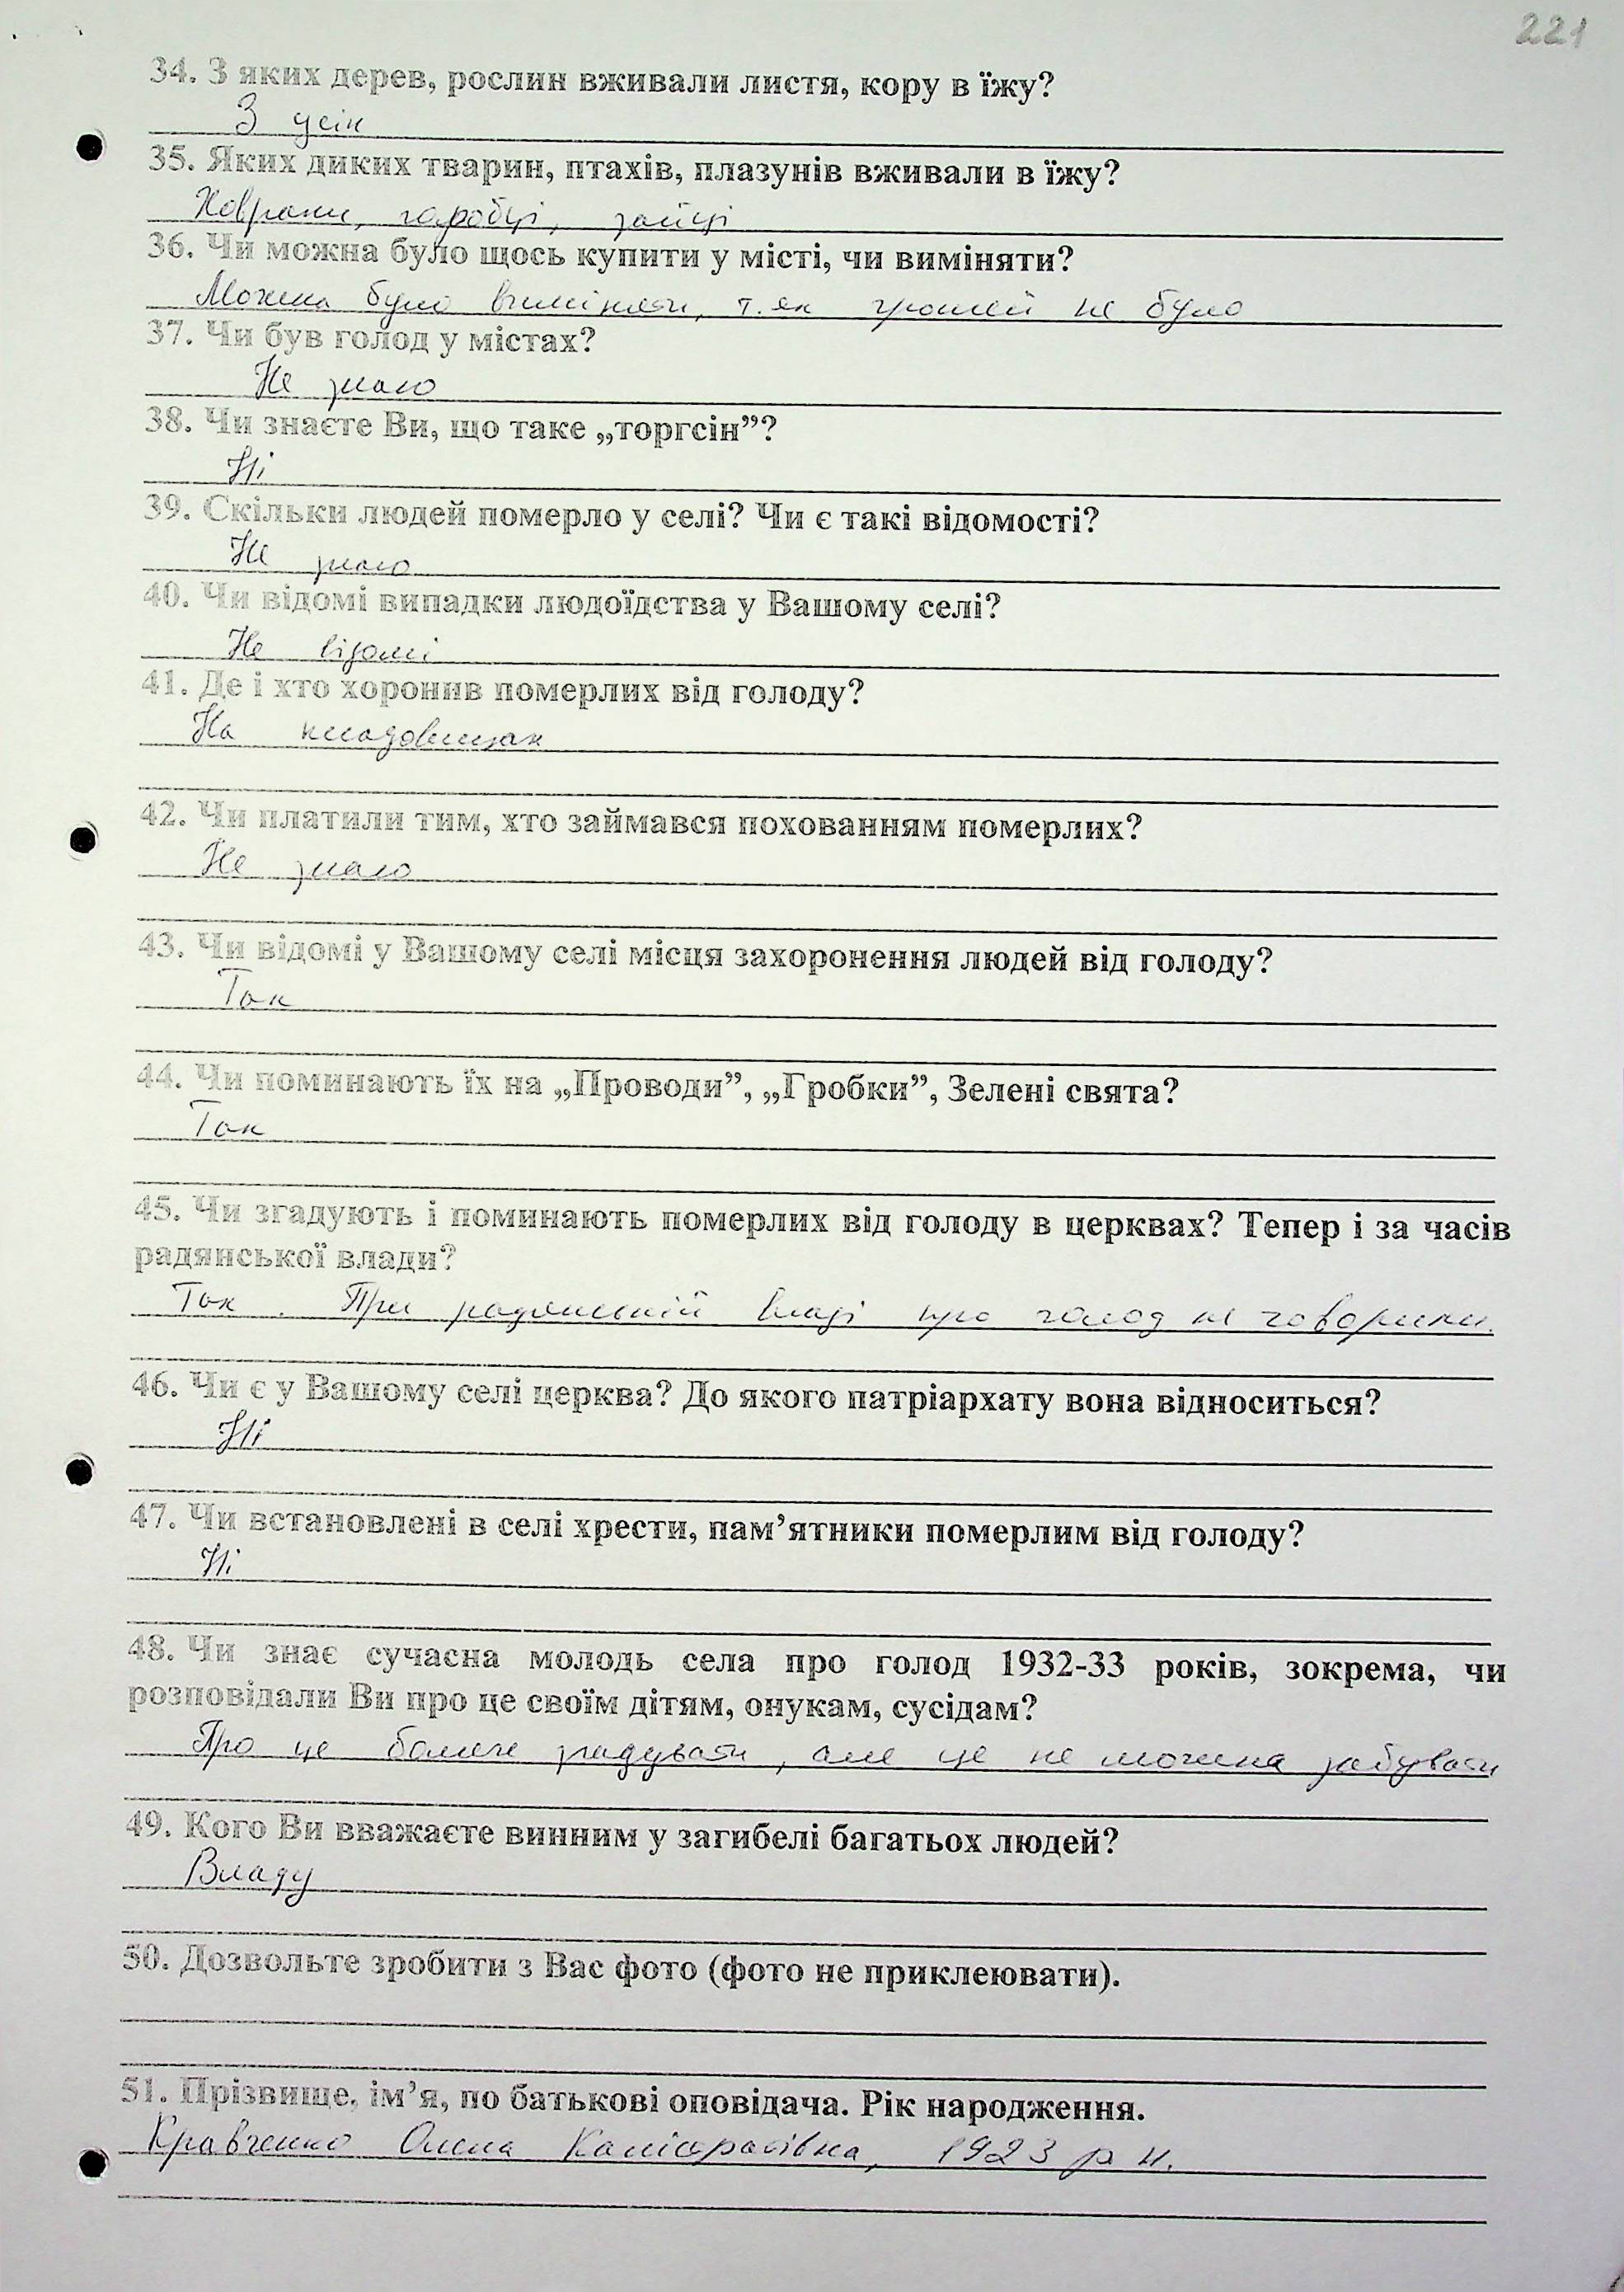 221
34. З яких дерев, рослин вживали листя, кору в їжу?
З усіх
35. Яких диких тварин, птахів, плазунів вживали в їжу?
Ховрахи, горобці, зайці
36. Чи можна було щось купити у місті, чи виміняти?
Можна було виміняти, т. як грошей не було
37. Чи був голод у містах?
Не знаю
38. Чи знаєте Ви, що таке „торгсін”?
Ні
39. Скільки людей померло у селі? Чи є такі відомості?
Не знаю
40. Чи відомі випадки людоїдства у Вашому селі?
Не відомі
41. Де і хто хоронив померлих від голоду?
На кладовищах
42. Чи платили тим, хто займався похованням померлих?
Не знаю
43. Чи відомі у Вашому селі місця захоронення людей від голоду?
Так
44. Чи поминають їх на „Проводи”, „Гробки”, Зелені свята?
Так
45. Чи згадують і поминають померлих від голоду в церквах? Тепер і за часів
радянської влади?
Так. При радянській владі про голод не говорили.
46. Чи є у Вашому селі церква? До якого патріархату вона відноситься?
Ні
47. Чи встановлені в селі хрести, пам’ятники померлим від голоду?
Ні
48. Чи знає сучасна молодь села про голод 1932-33 років, зокрема, чи
розповідали Ви про це своїм дітям, онукам, сусідам?
Про це боляче згадувати, але це не можна забувати
49. Кого Ви вважаєте винним у загибелі багатьох людей?
Владу
50. Дозвольте зробити з Вас фото (фото не приклеювати).
51. Прізвище, ім’я, по батькові оповідача. Рік народження.
Кравченко Олена Калістратівна, 1923 р н.